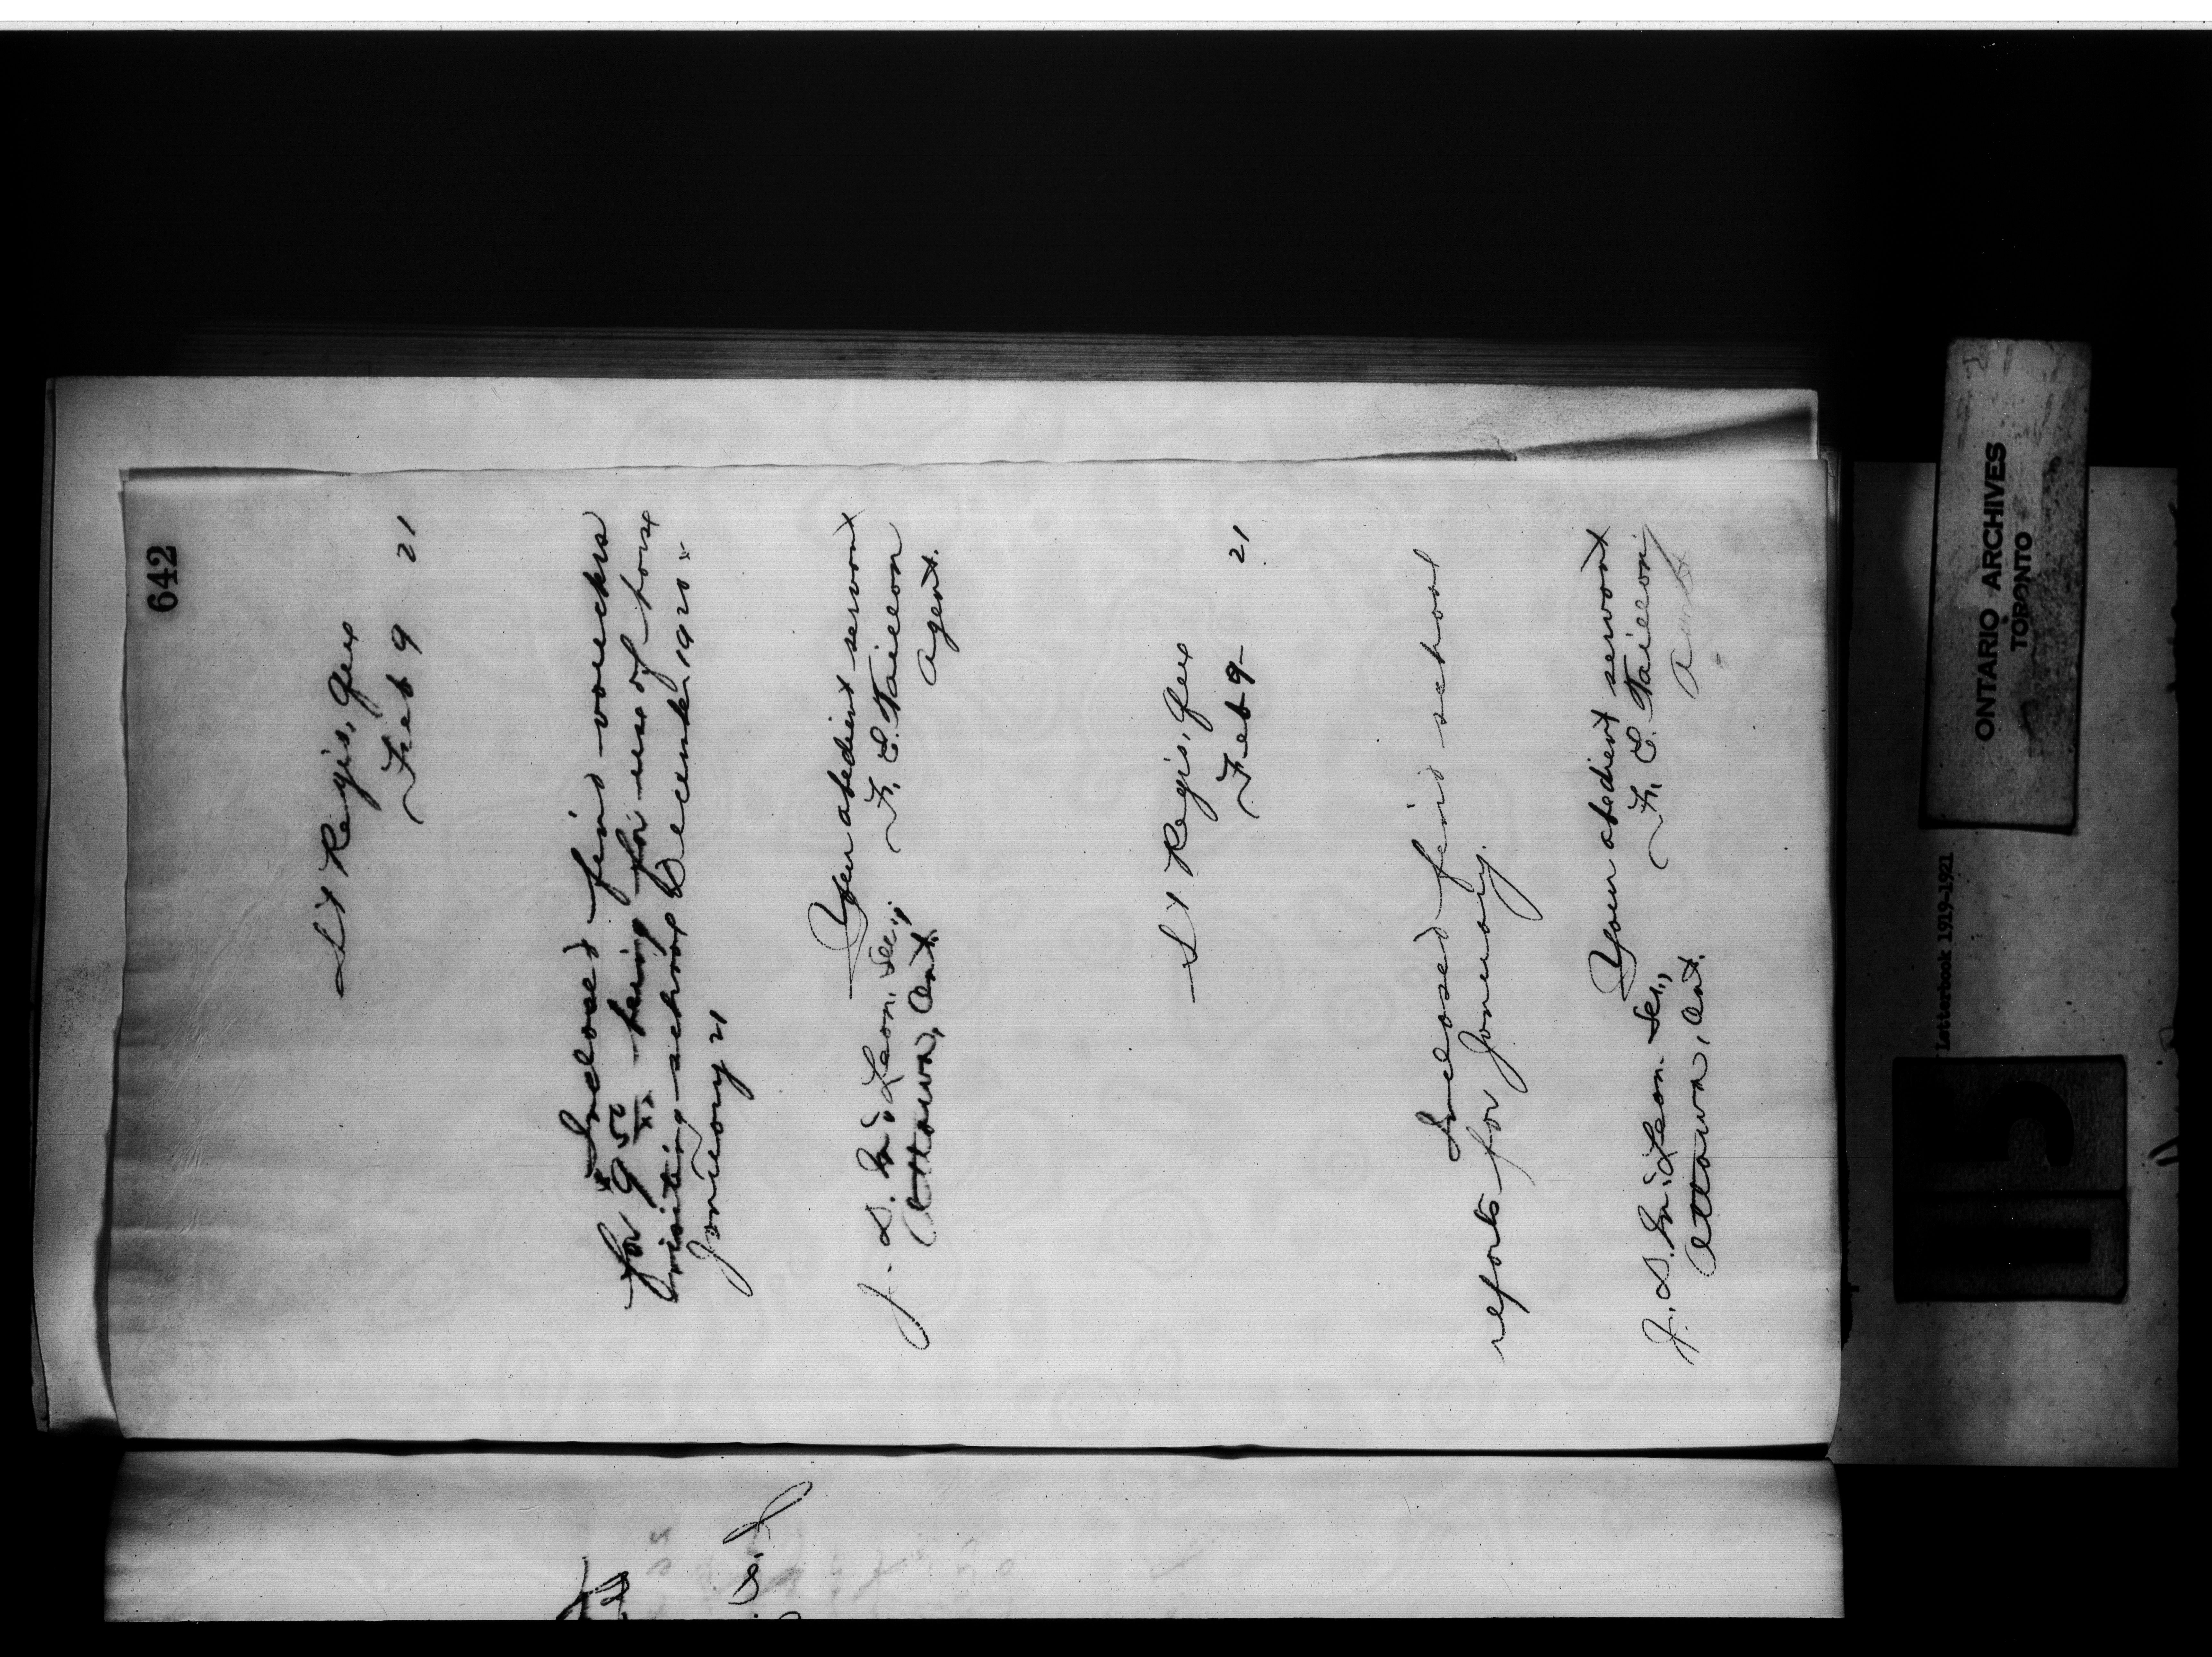 642
St Regis, Que
Feb 9 21
Inclosed find vouchers
for 9 50/xx being for use of horse
visiting school December 1920 &
January 21
Your obedient servant
F. E. Taillon
Agent.
J. D. McLean, Sec.,
Ottawa, Ont.
St Regis, Que
Feb 9- 21
Inclosed find school
reports for January.
Your obedient servant
F. E. Taillon
Agent
J. D. McLean Sec.,
Ottawa, Ont.
ONTARIO ARCHIVES
TORONTO
Letterbook 1919-1921